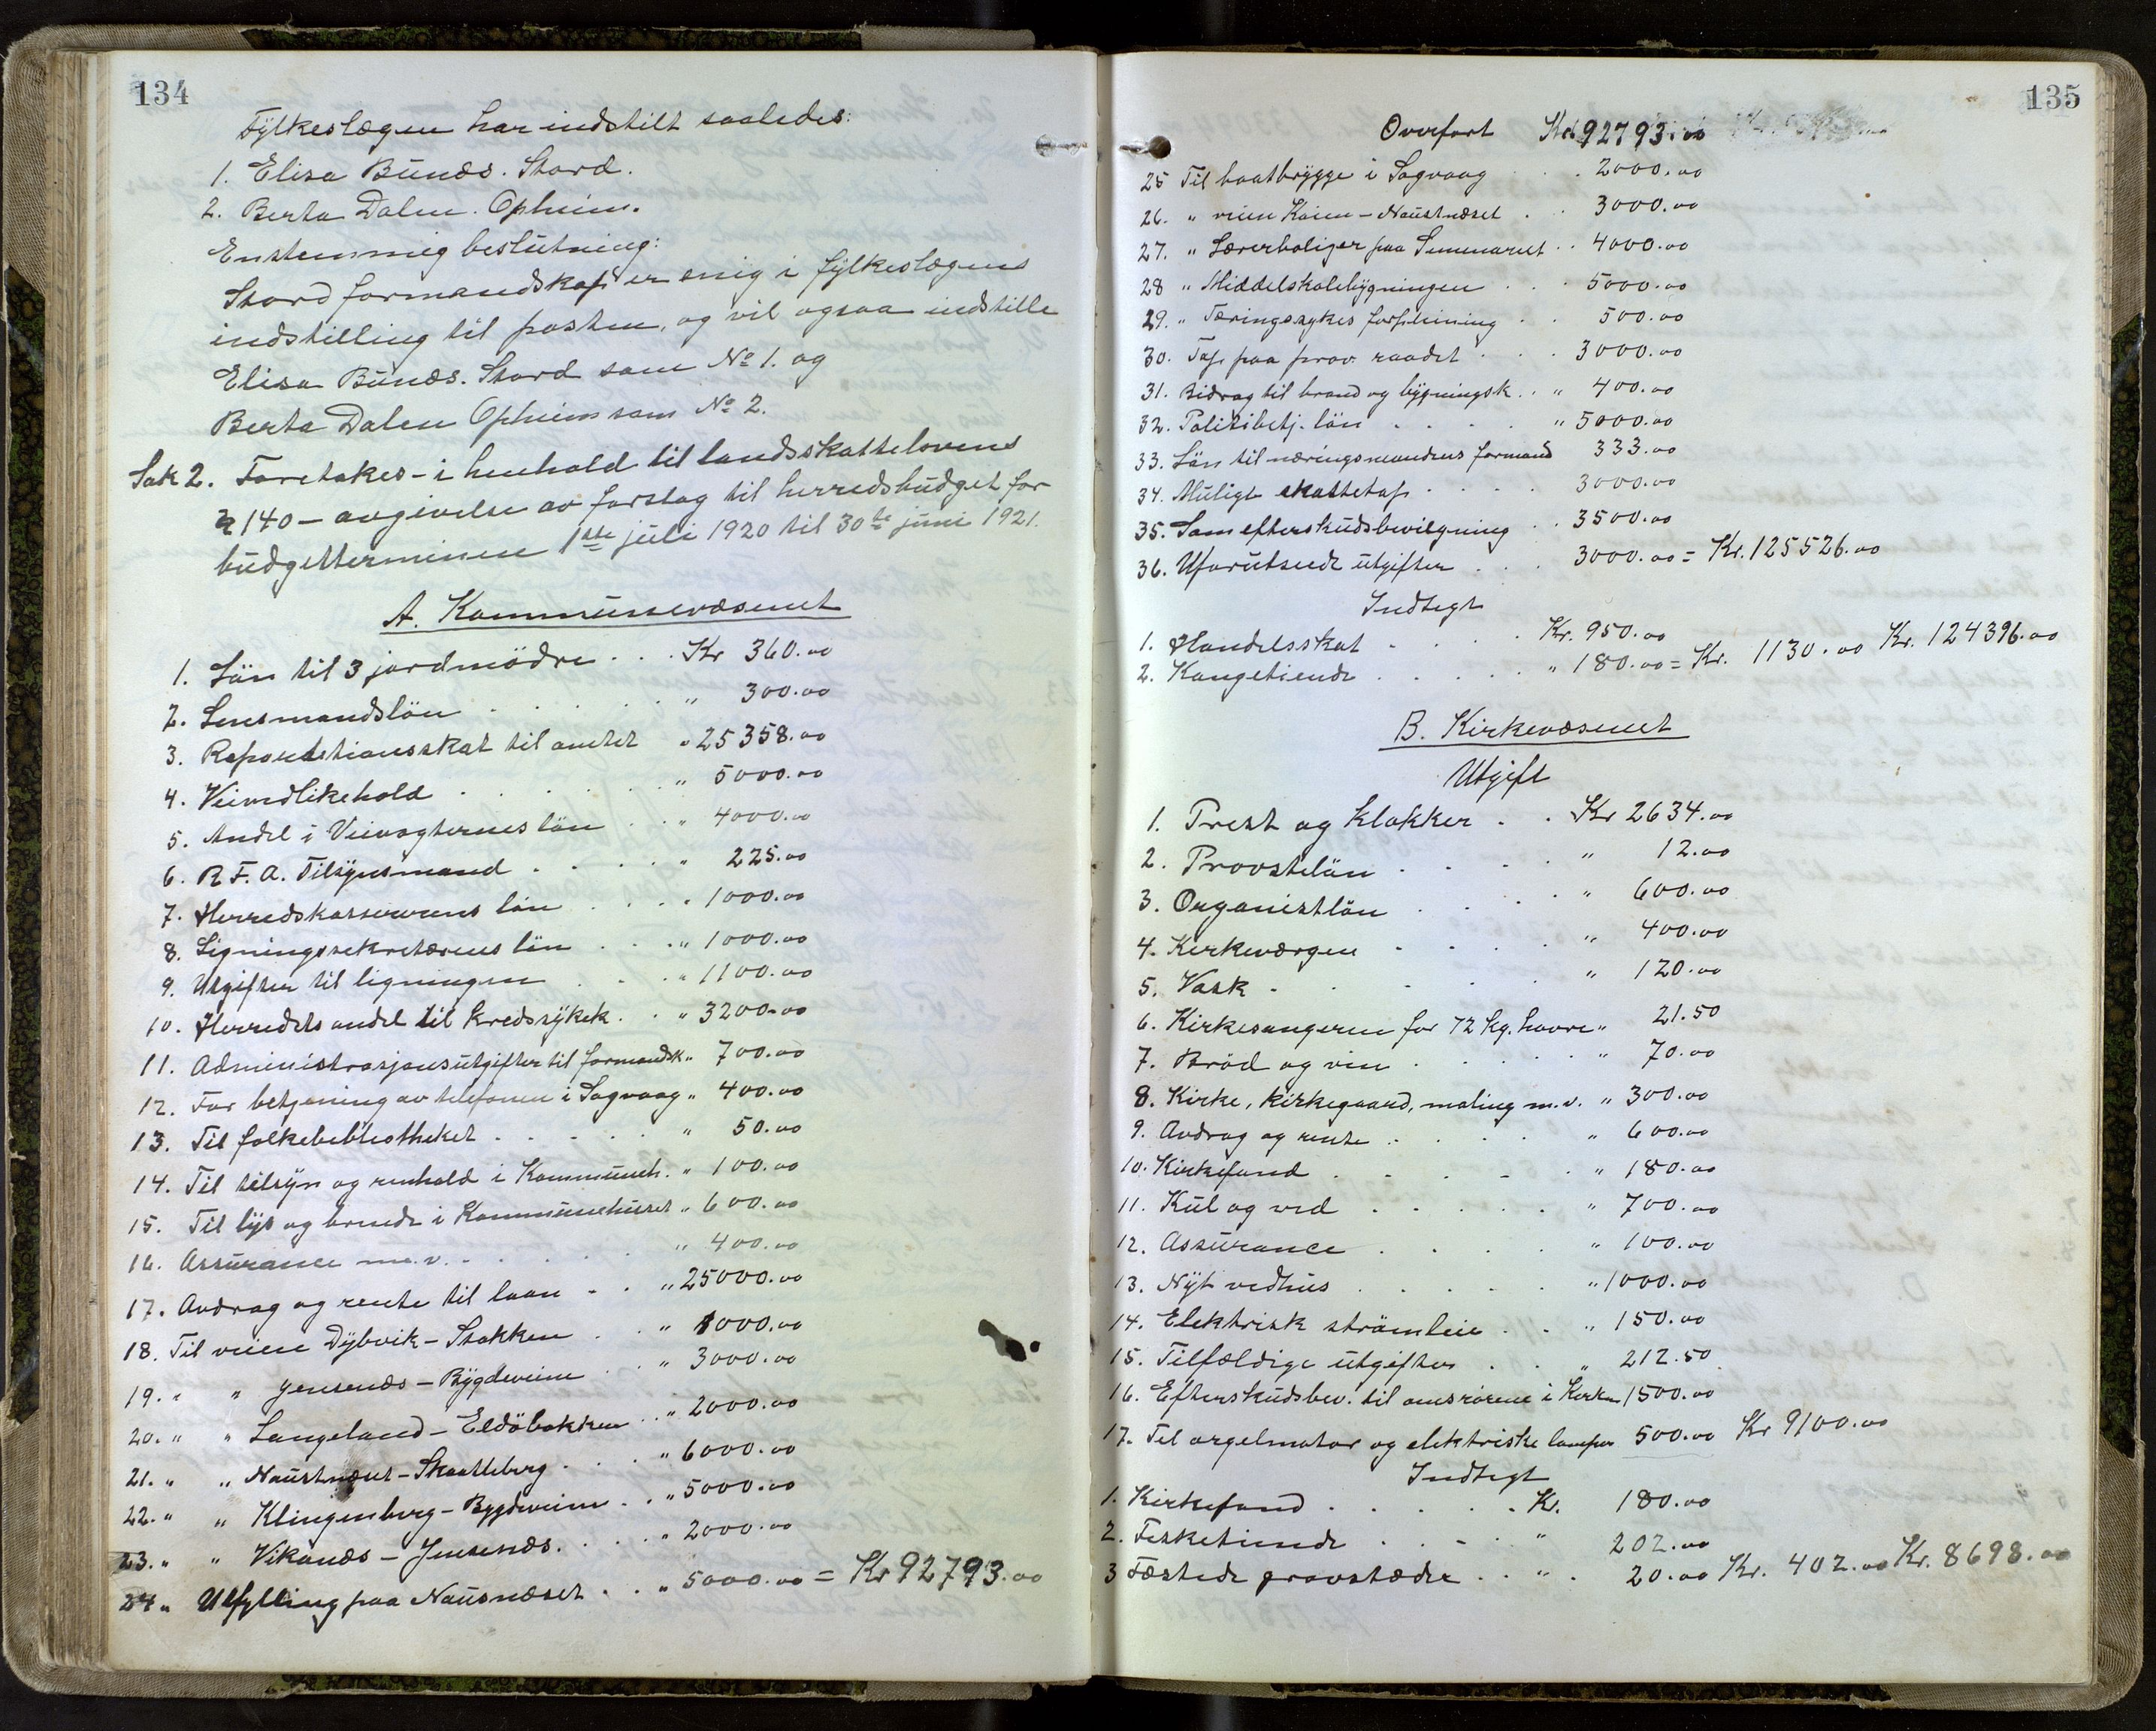 134
Fylkeslægen har indstilt saaledes:
1. Elisa Bünæs. Stord.
2. Berta Dalen. Opheim.
Enstemmig beslütning:
Stord formandskap er enig i fylkeslægens
indstilling til posten, og vil ogsaa indstille
Elisa Bünæs. Stord som No 1. og
Berta Dalen Opheim som No 2.
Sak 2. Foretakes - i henhold til landsskattelovens
§ 140 - avgivelse av forslag til herredsbüdget for
büdgetterminen 1ste jüli 1920 til 30te jüni 1921.
A. Kommünevæsenet
1. Lön til 3 jordmödre . . . Kr 360.00
2. Lensmandslön . . . . . " 300.00
3. Repartitionsskat til amtet " 25358.00
4. Veivedlikehold . . . . . " 5000.00
5. Andel i Veivogternes lön . . " 4000.00
6. R. F. A. Tilsynsmand . . . . " 225.00
7. Herredskassererens lön . . . " 1000.00
8. Ligningssekretærens lön . . . " 1000.00
9. Utgifter til ligningen . . . " 1100.00
10. Herredets andel til kredssykek. . " 3200.00
11. Administrasjonsütgifter til formandsk. " 700.00
12. For betjening av telefonen i Sagvaag " 400.00
13. Til folkebibliotheket . . . . . " 50.00
14. Til tilsyn og renhold i Kommüneh. " 100.00
15. Til lys og brende i Kommünehüset " 600.00
16. Assürance m.v. . . . . " 400.00
17. Avdrag og rente til laan . . " 25000.00
18. Til veien Dybvik - Stokken . . " 1000.00
19. " " Jensenæs - Bygdeveien . . " 3000.00
20. " " Langeland - Eldöbakken . . " 2000.00
21. " " Naüstnæset - Skaatteberg . . . " 6000.00
22. " " Klingenberg - Bygdeveien . . " 5000.00
23. " " Vikanæs - Jensenæs. . . . " 2000.00
24. " Utfylling paa Naüsnæset . . " 5000.00 = Kr 92793.00
135
Overført Kr. 92793.00
25 Til baatbrygge i Sagvaag . . 2000.00
26. " veien Kaien - Naüstnæset . . 3000.00
27. " Lærerboliger paa Seminariet . . 4000.00
28 " Middelskolebygningen . . . 5000.00
29. " Tæringssykes forpleining . . 500.00
30. Tap paa prov. raadet . . . 3000.00
31. Bidrag til brand og bygningsk. . " 400.00
32. Politibetj. lön . . . . " 5000.00
33. Lön til næringsnevndens formand 333.00
34. Müligt skattetap . . . . 3000.00
35. Som eftersküdsbevilgning . . 3500.00
36. Uforütseede ütgifter . . . 3000.00 = Kr. 125526.00
Indtegt
1. Handelsskat . . . . Kr. 950.00
2. Kongetiende . . . . . " 180.00 = Kr. 1130.00 Kr. 124396.00
B. Kirkevæsenet
Utgift
1. Prest og klokker . . Kr 2634.00
2. Provstelön . . . . " 12.00
3. Organistlön . . . . " 600.00
4. Kirkeværgen . . . . " 400.00
5. Vask . . . . . " 120.00
6. Kirkesangeren for 72 kg. havre " 21.50
7. Bröd og vin . . . . . " 70.00
8. Kirke, kirkegaard, maling m.v. " 300.00
9. Avdrag og rente . . . . " 600.00
10. Kirkefond . . . . . " 180.00
11. Kül og ved . . . . . " 700.00
12. Assürance . . . . " 100.00
13. Nyt vedhüs . . . . . " 1000.00
14. Elektrisk strömleie . . " 150.00
15. Tilfældige ütgifter . . " 212.50
16. Eftersküdsbev. til omsrörene i Kirken 1500.00
17. Til orgelmotor og elektriske lamper 500.00 Kr 9100.00
Indtegt
1. Kirkefond . . . . . Kr. 180.00
2. Fisketiende . . . . " 202.00
3 Fæstede gravstæder . . " . 20.00 Kr. 402.00 Kr. 8698.00